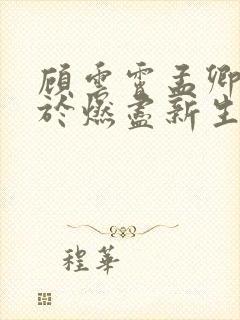 顾雲霄孟卿
於燃盡新生
程華